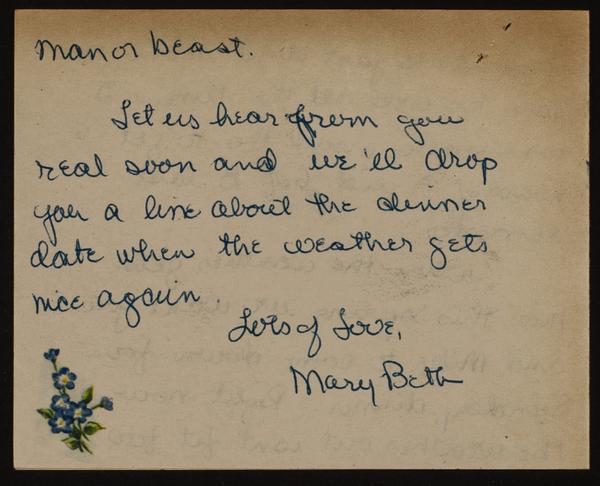 man or beast.
Let us hear from you
real soon and we'll drop
you a line about the dinner
date when the weather gets
nice again.
Lots of Love,
Mary Beth